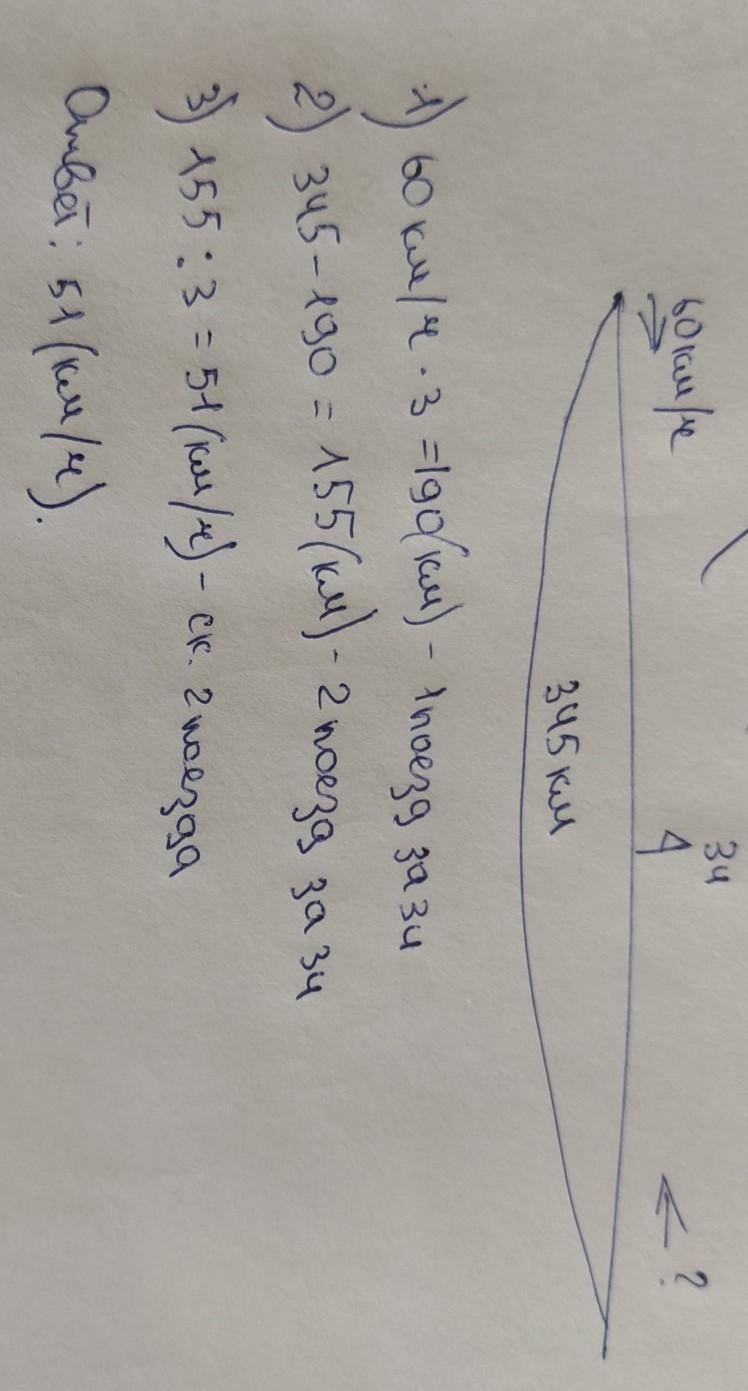 60 км/ч 3ч ?
345 км
1) 60 км/ч · 3 = 190(км) - 1 поезд за 3ч
2) 345 - 190 = 155(км) - 2 поезд за 3ч
3) 155 : 3 = 51(км/ч) - ск. 2 поезда
Ответ: 51(км/ч).